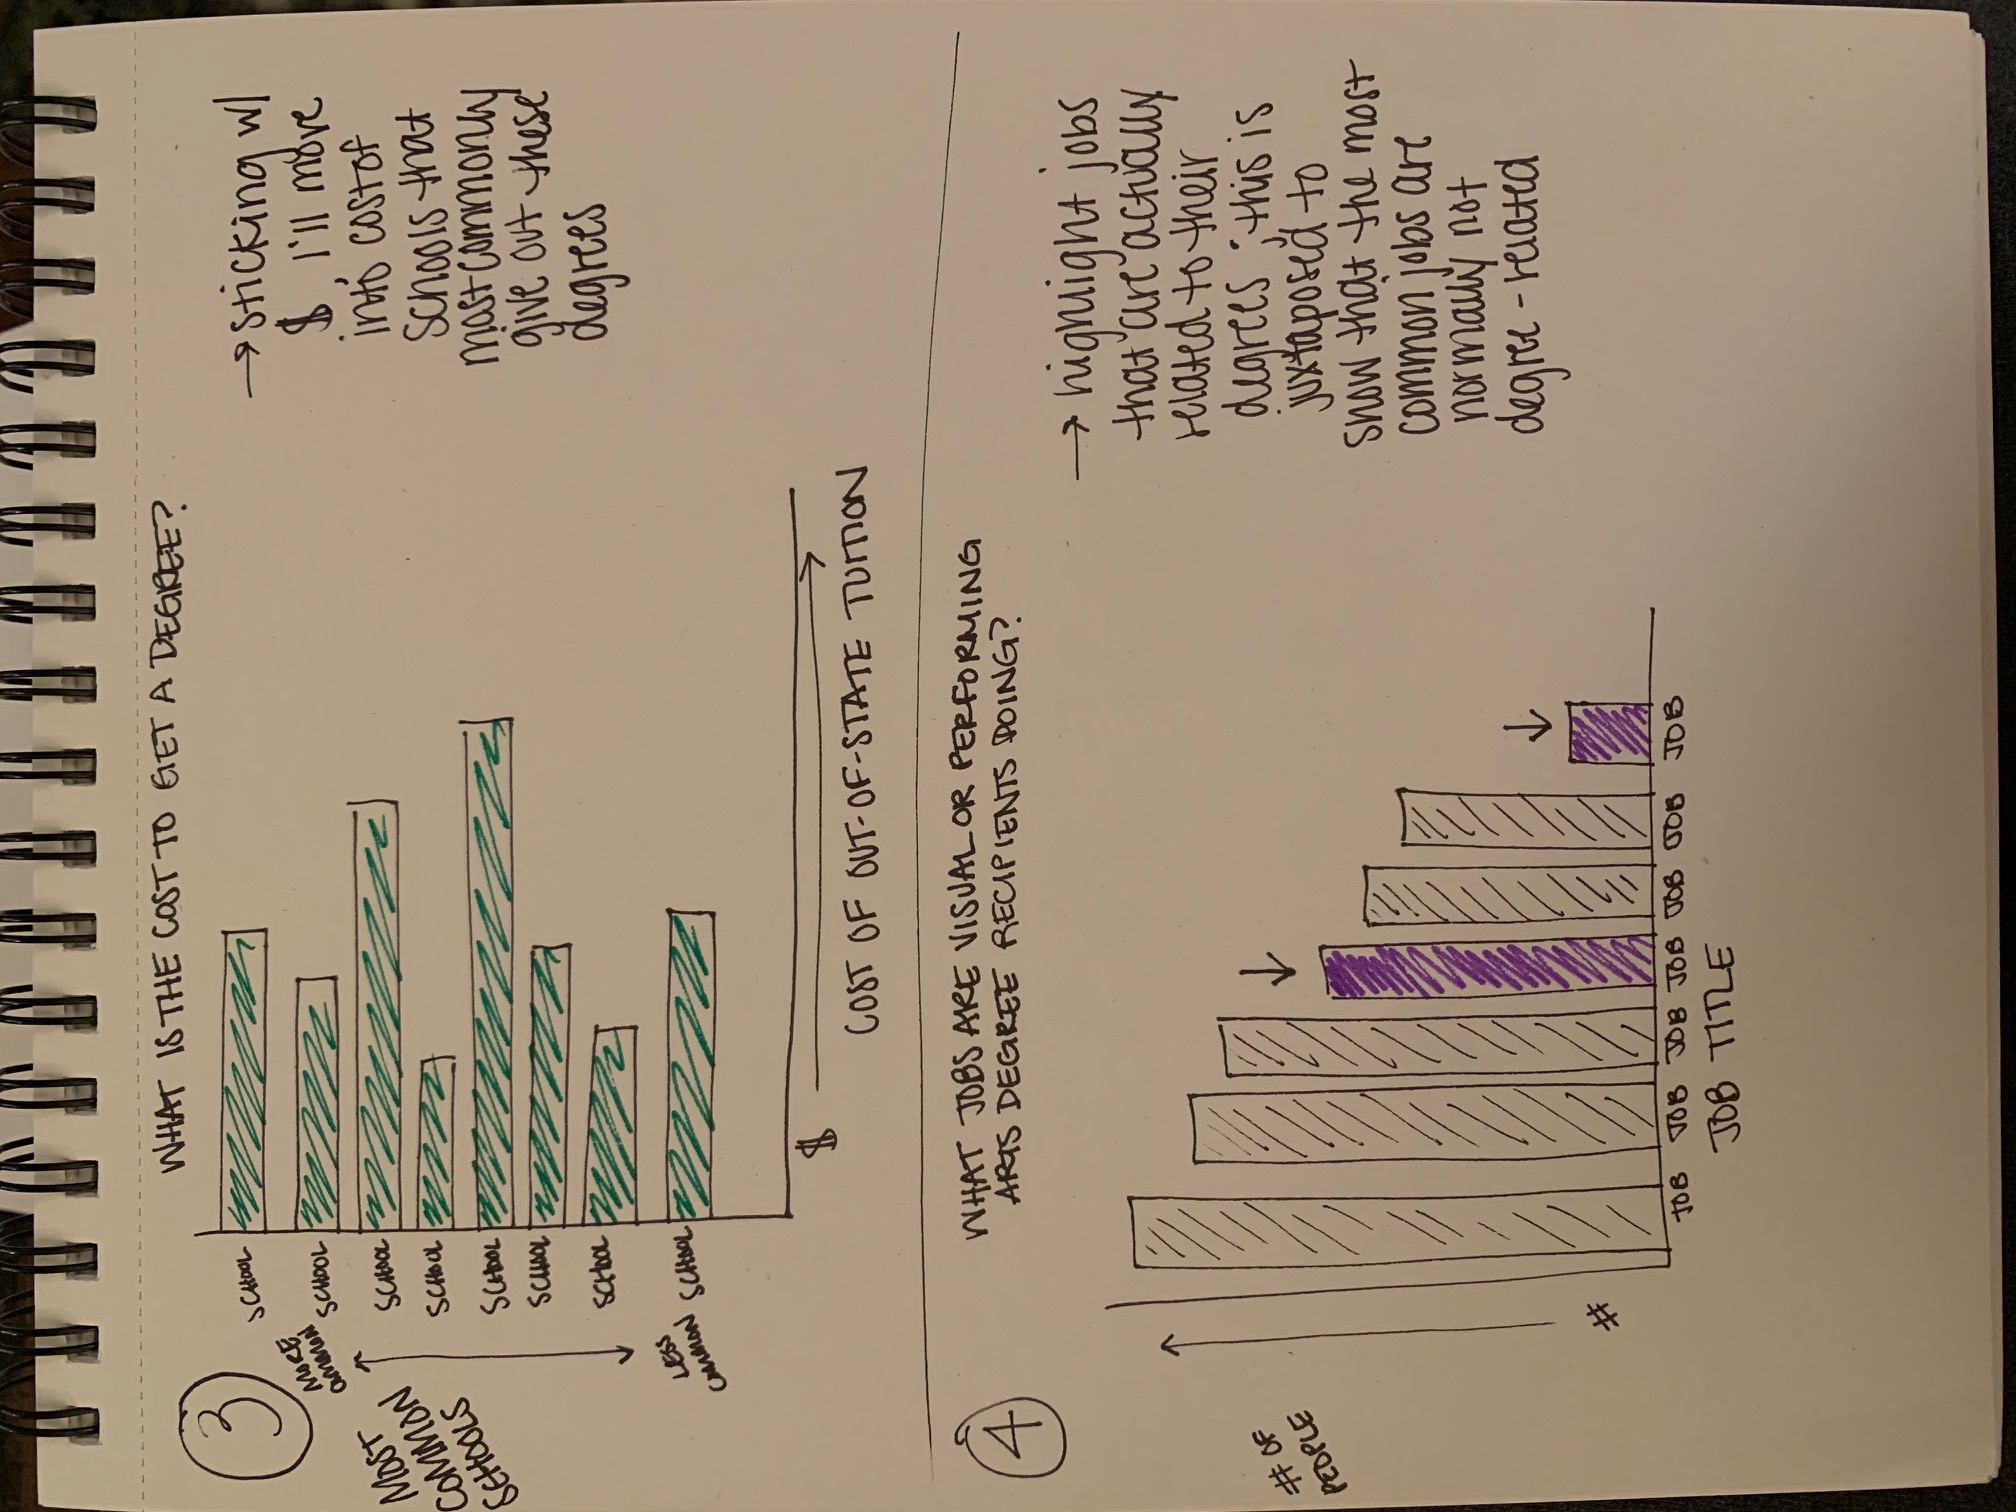 3
WHAT IS THE COST TO GET A DEGREE?
MOST
COMMON
SCHOOLS
MORE
COMMON
LESS
COMMON
SCHOOL
SCHOOL
SCHOOL
SCHOOL
SCHOOL
SCHOOL
SCHOOL
SCHOOL
$
COST OF OUT-OF-STATE TUITION
→ sticking w/
$, I'll move
into cost of
schools that
most commonly
give out these
degrees
4
WHAT JOBS ARE VISUAL OR PERFORMING
ARTS DEGREE RECIPIENTS DOING?
# OF
PEOPLE
#
JOB JOB JOB JOB JOB JOB JOB
JOB TITLE
→ highlight jobs
that are actually
related to their
degrees ; this is
juxtaposed to
show that the most
common jobs are
normally not
degree - related